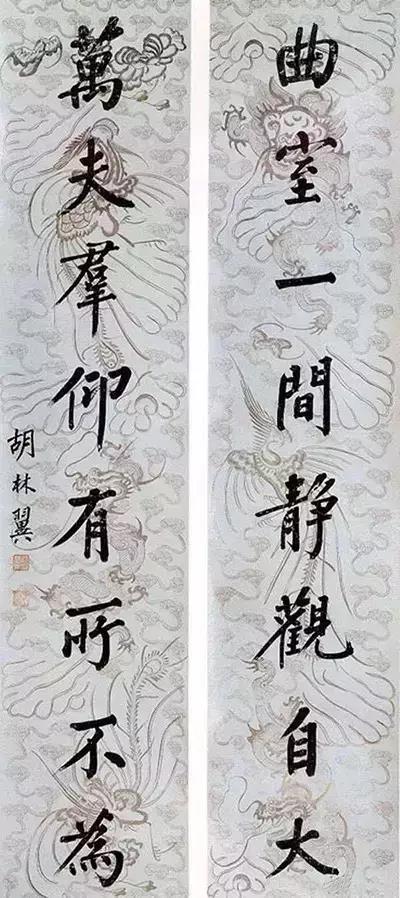 曲室一間靜觀自大
萬夫羣仰有所不為
胡林翼